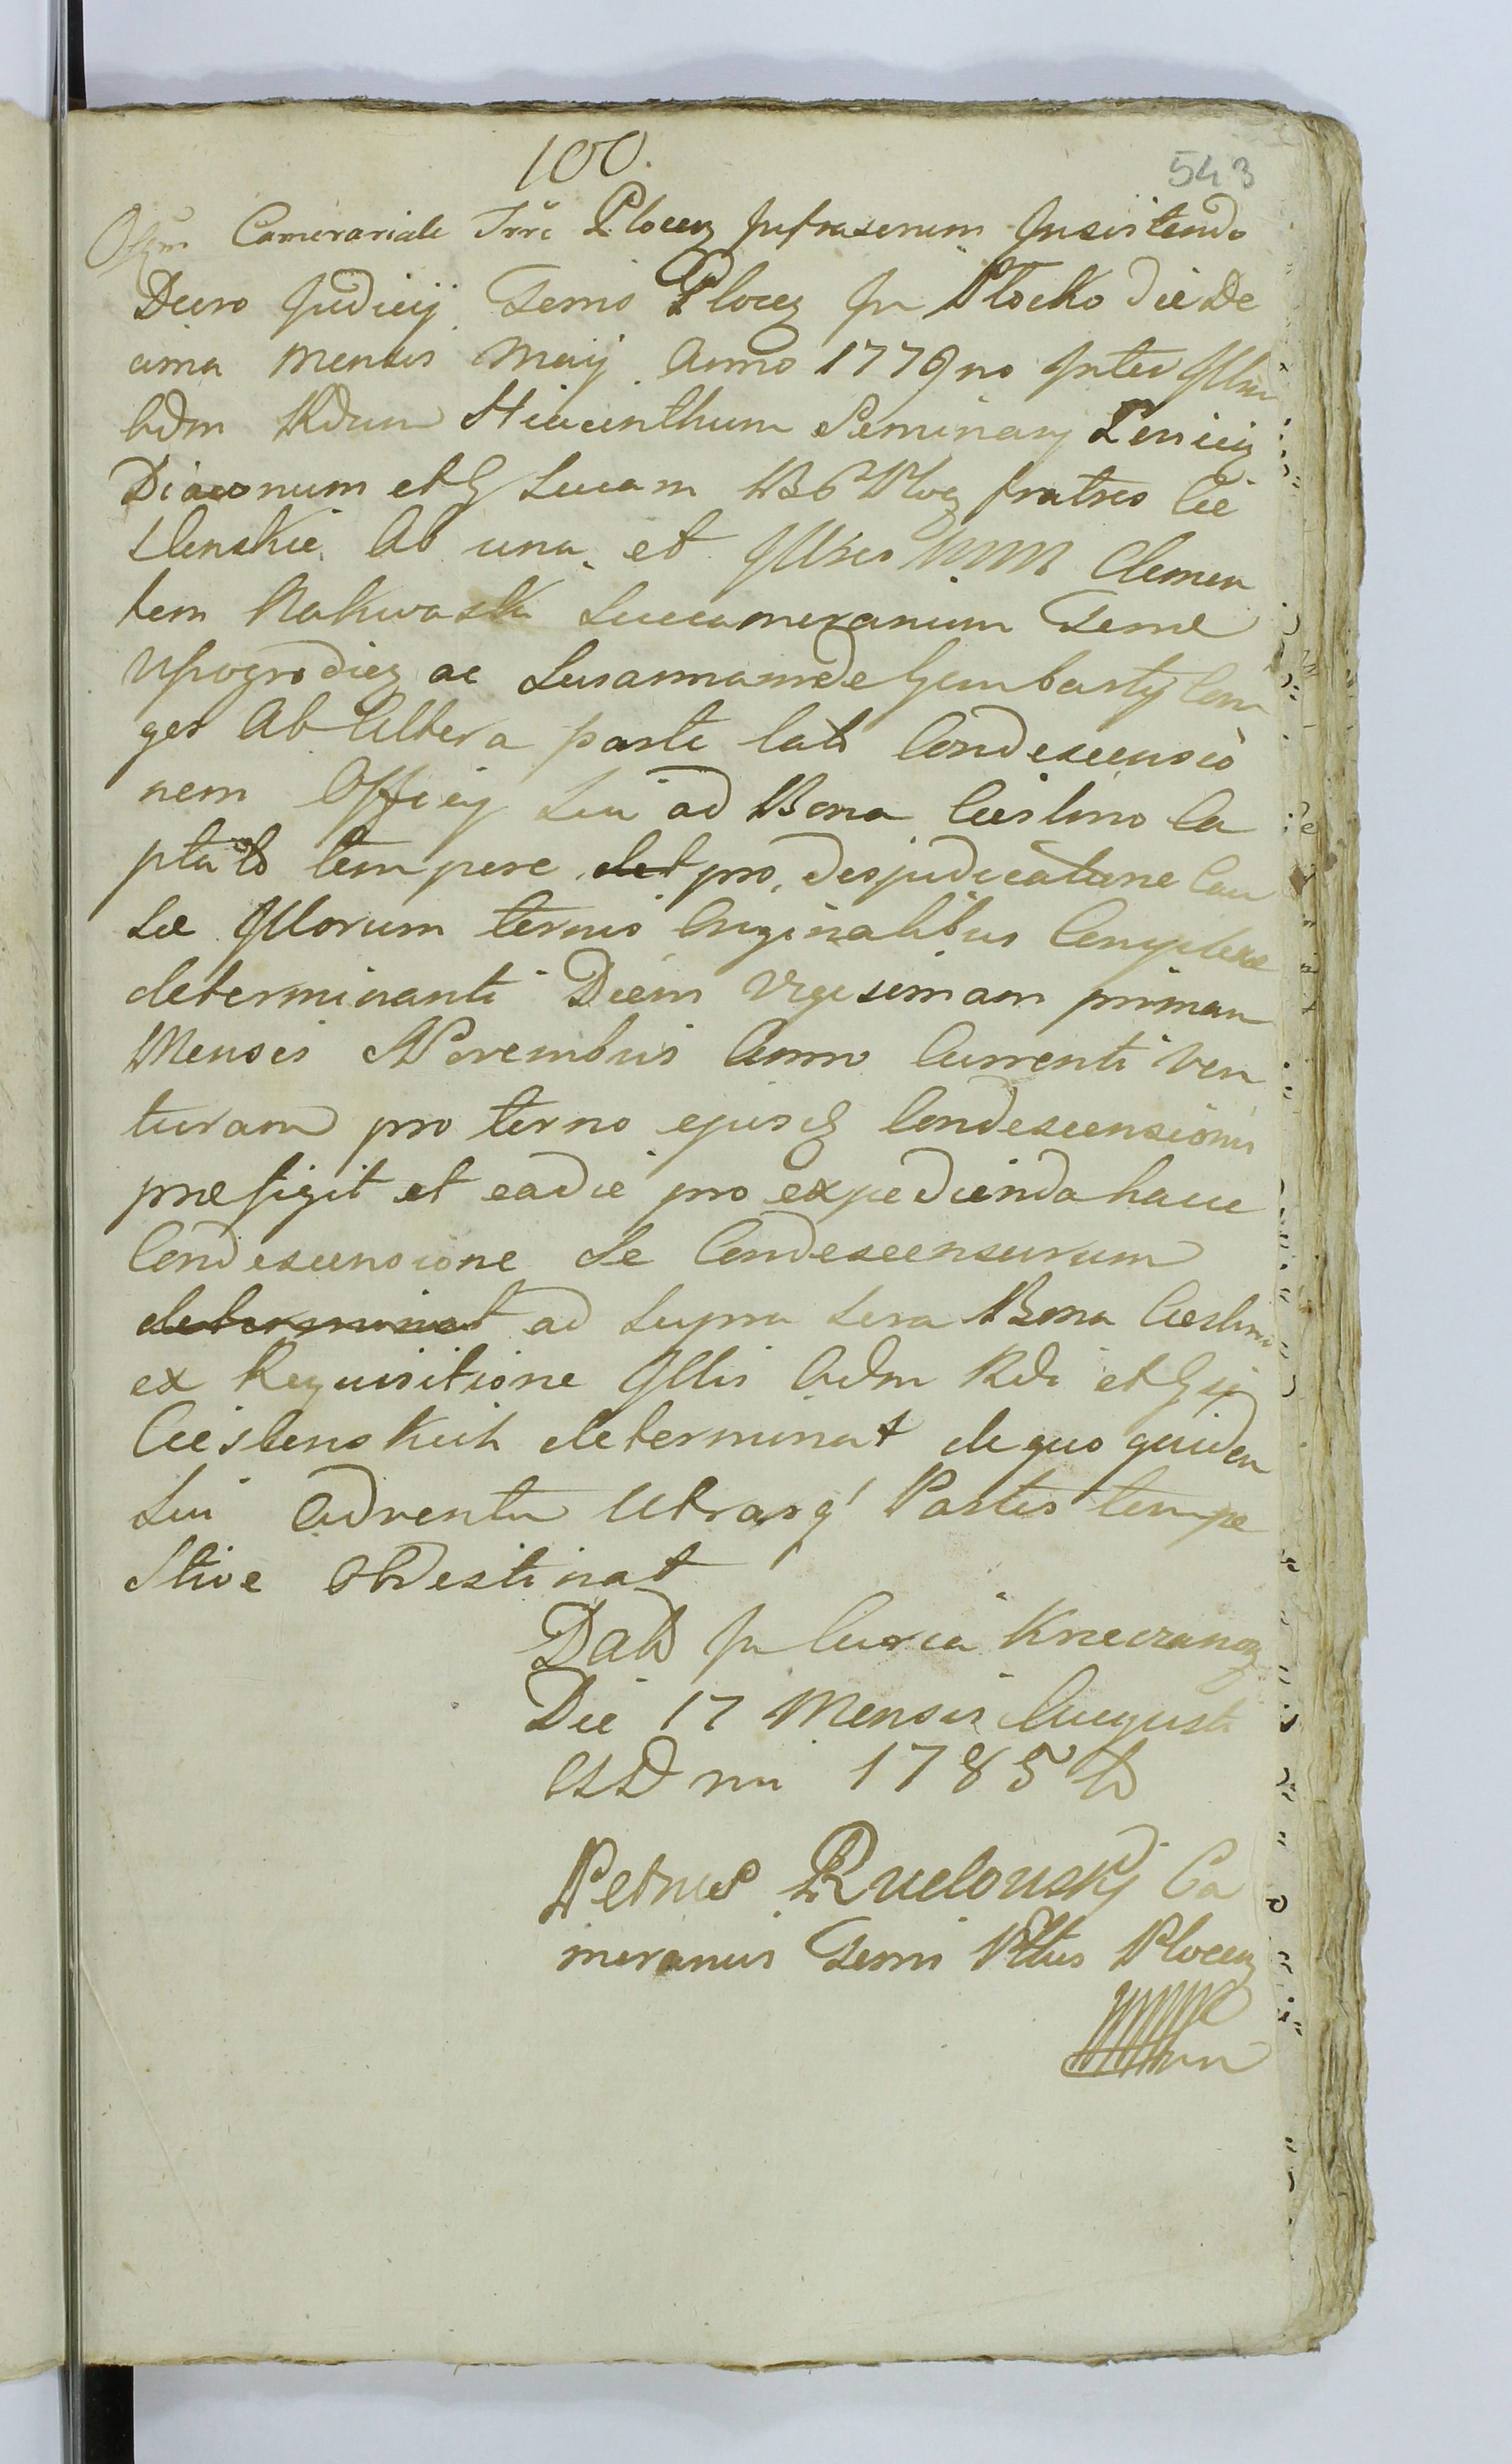 100.
543
Offm Camerariale Trre Plocen Infrascrium Insistendo
Decro Judicij Terris Plocen In Płocko die De
cima Mensis Maij Anno 1779no Inter Illm
Adm Rdum Hiacinthum Seminarij
Diaconum et G Lucam B6 Ploc fratres Cie
slenskie Ab una, et Illres MM Clemen
tem Nakwaski Succamerarium Terrae
Wyszogrodien ac Susannam de Gembarty Con
ges Ab Altera parte lato Condescensio
nem Officij Sui ad Bona Cieslino Ca
ptato tempore det pro, desjudicatione Cau
sae Illorum termis Originalibus Complexae
determinanti Diem Vigesimam primam
Mensis Novembris Anno Currenti Ven
turam pro termo ejusq Condescensionis
praefigit et eadie pro expedienda hacce
Condescensione Se Condescensurum
determinat ad supra scra Bona Cieslino
ex Requisitione Illis Adm Rdi et G
Cieslenskich determinat de quo quidem
Sui Adventu Utrasq' Partes tempe
stive Obdestinat
Dato In Curia
Die 17 Mensis Augusti
A D ni 1785to
Petrus Rudowskj Ca
merarius Terris Pttus Plocen